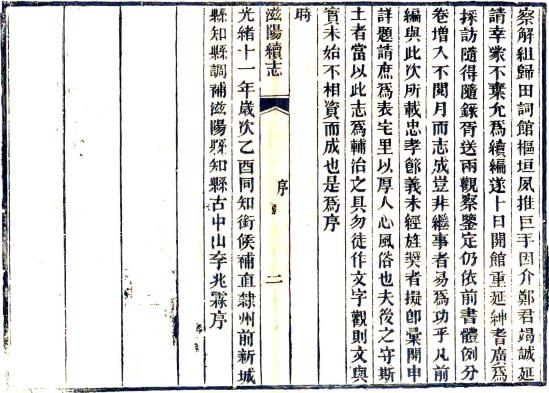 察解組歸田詞館樞垣夙推巨手因介鄭君竭誠延
請幸蒙不棄允爲續編遂十日開館重延紳耆廣爲
採訪隨得隨錄胥送兩觀察鑒定仍依前書體例分
卷增入不閱月而志成豈非繼事者易爲功乎凡前
編與此次所載忠孝節義未經旌奬者擬卽彙開申
詳題請庶爲表宅里以厚人心風俗也夫後之守斯
土者當以此志爲輔治之具勿徒作文字觀則文與
實未始不相資而成也是爲序
時
滋陽續志
序
二
光緒十一年歲次乙酉同知銜候補直隸州前新城
縣知縣調補滋陽縣知縣古中山李兆霖序